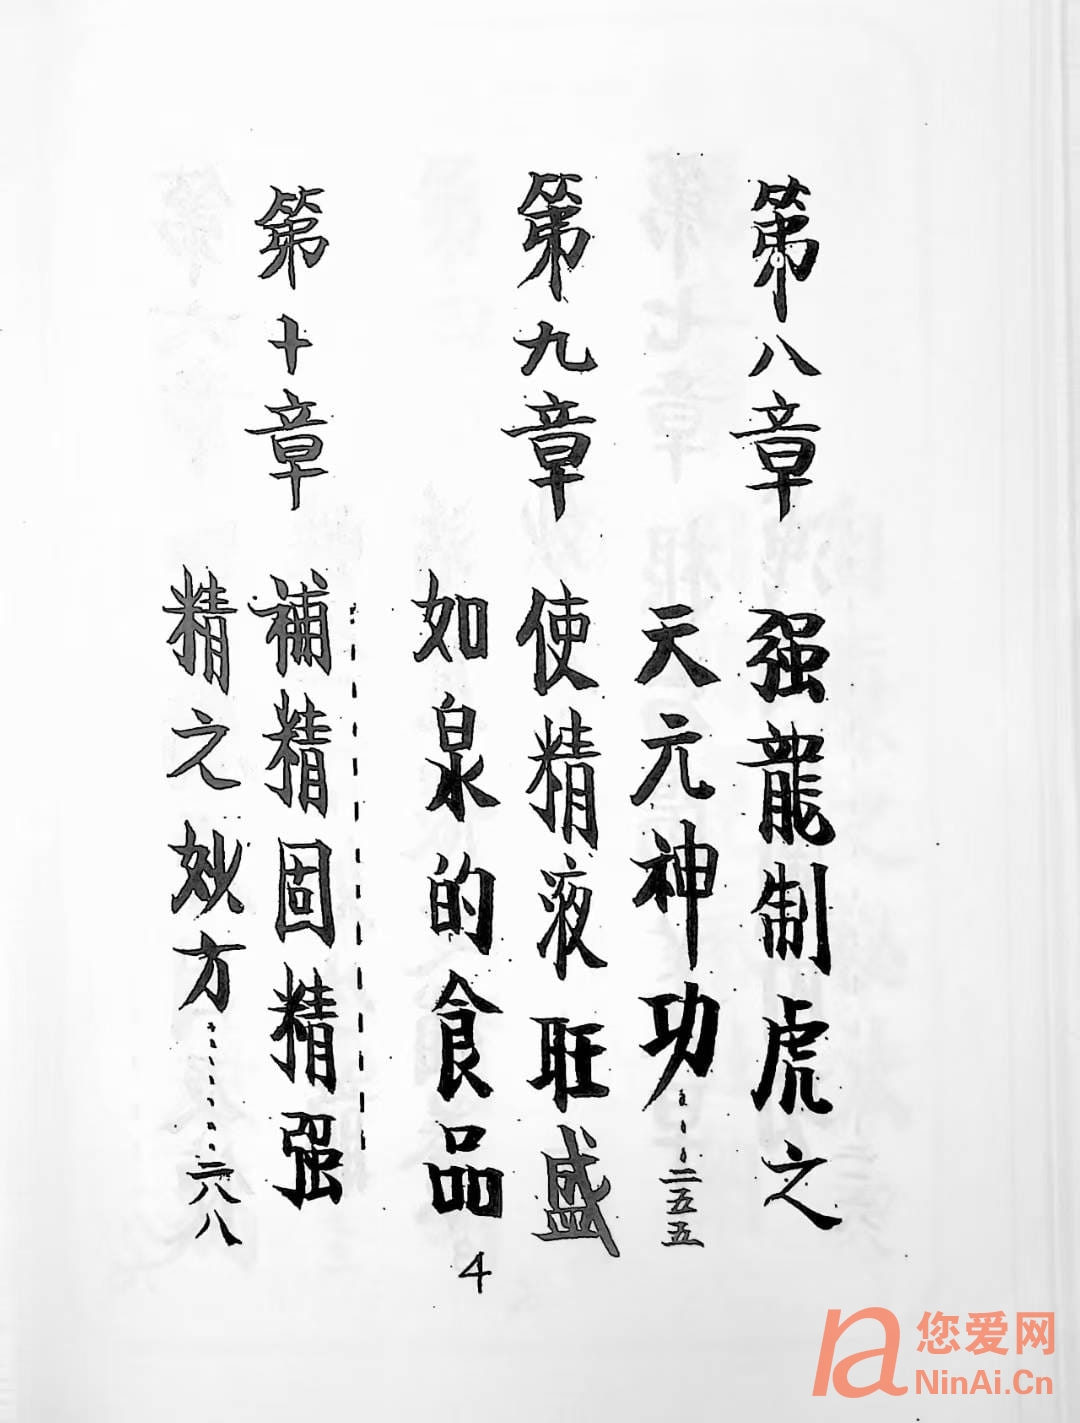 第八章 强龍制虎之
天元神功……二五五
第九章 使精液旺盛
如泉的食品
第十章 補精固精强
精之妙方……二八八
4
您爱网
NinAi.Cn